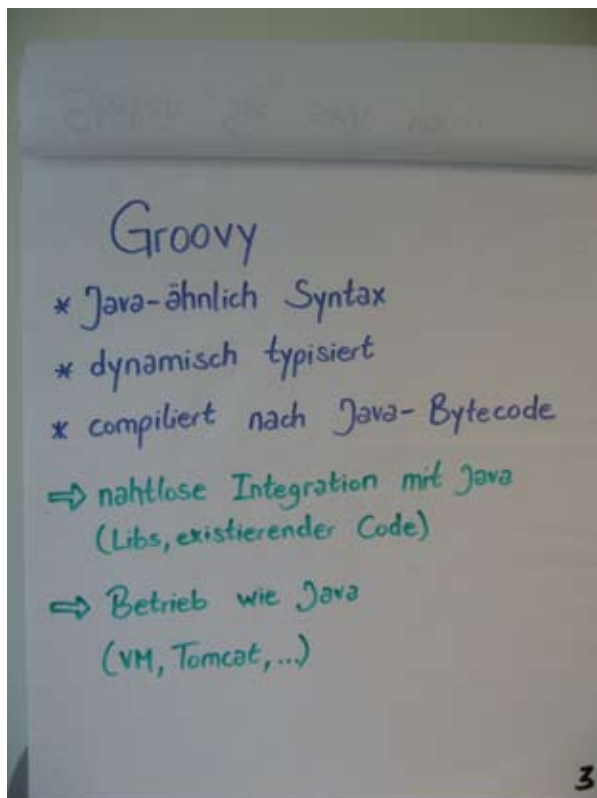 Groovy
* Java-ähnlich Syntax
* dynamisch typisiert
* compiliert nach Java-Bytecode
⇨ nahtlose Integration mit Java
(Libs, existierender Code)
⇨ Betrieb wie Java
(VM, Tomcat,...)
3